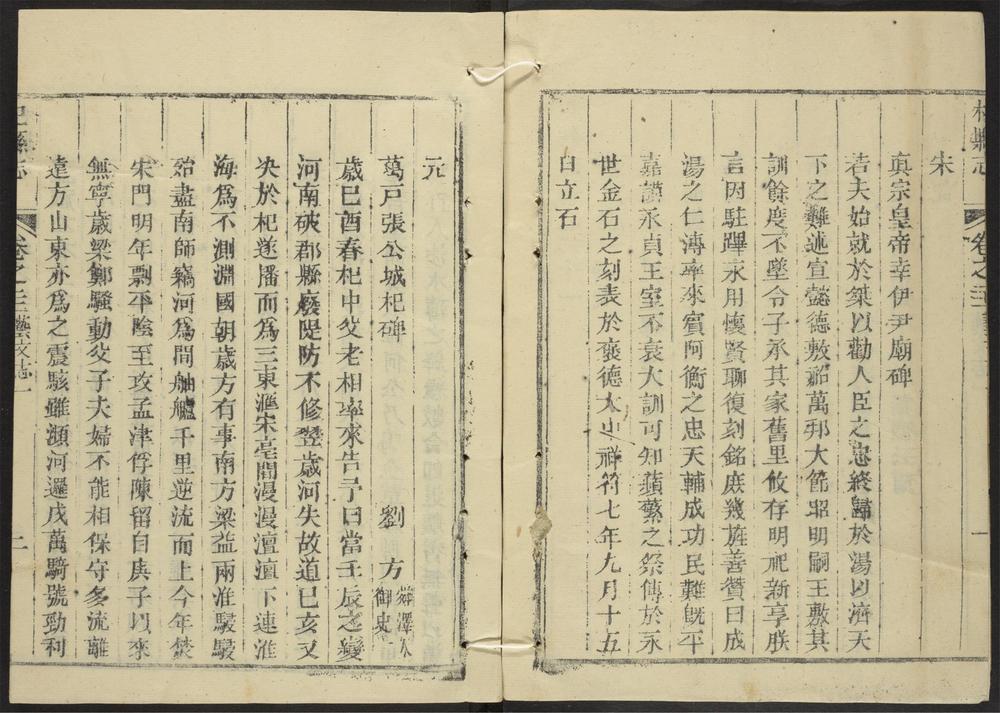 杞縣志
卷之二十
一
宋
真宗皇帝幸伊尹廟碑
若夫始就於桀以勸人臣之忠終歸於湯以濟天
下之難述宣懿德敷諂萬邦大節昭明嗣王敷其
訓餘度不墜令子承其家舊里攸存明祀新享朕
言因駐蹕永用懷賢聊復刻銘庶幾旌善贊曰成
湯之仁溥率來賓阿衡之忠天輔成功民難旣平
嘉謨永貞王室不衰大訓可知蘋蘩之祭傳於永
世金石之刻表於褒德大中祥符七年九月十五
日立石
元
萬戶張公城杞碑 劉方 舜澤人 御史
歲巳酉春杞中父老相率來告予曰當壬辰之變
河南破郡縣廢隄防不修翌歲河失故道巳亥又
決於杞遂播而為三東滙宋亳間漫漫澶澶下連淮
海爲不測淵國朝歲方有事南方梁益兩淮駸駸
殆盡南師竊河爲間舳艫千里逆流而上今年焚
宋門明年剽平陰至攻孟津俘陳留自庚子以來
無寧歲梁鄭騷動父子夫婦不能相保守多流離
遠方山東亦爲之震駭雖瀕河邏戍萬騎號勁利
杞縣志
卷之二十藝文志一
二